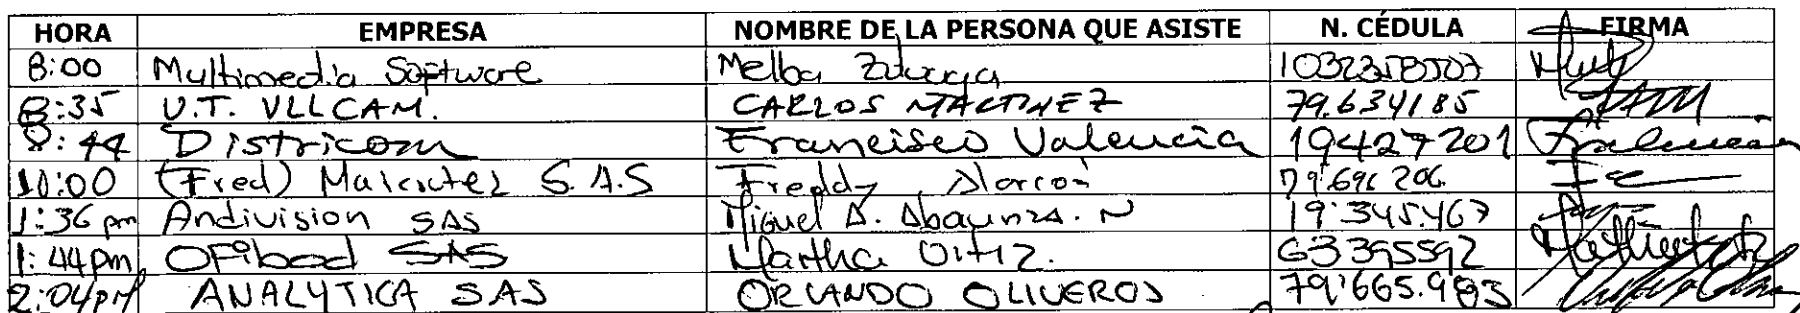 HORA EMPRESA NOMBRE DE LA PERSONA QUE ASISTE N. CÉDULA FIRMA
8:00 Multimedia Software Melba
8:35 U.T. VLLCAM. CARLOS MARTINEZ 79.634185
8:44 Districom Francisco Valencia 19427201
10:00 (Fred) S.A.S Freddy Alarcón
1:36 pm Andivision SAS Miguel A. Abaunza. N 19'345.467
1:44pm OFibod SAS Martha Ortiz. 63395592
2:04pM ANALYTICA SAS ORLANDO OLIVEROS